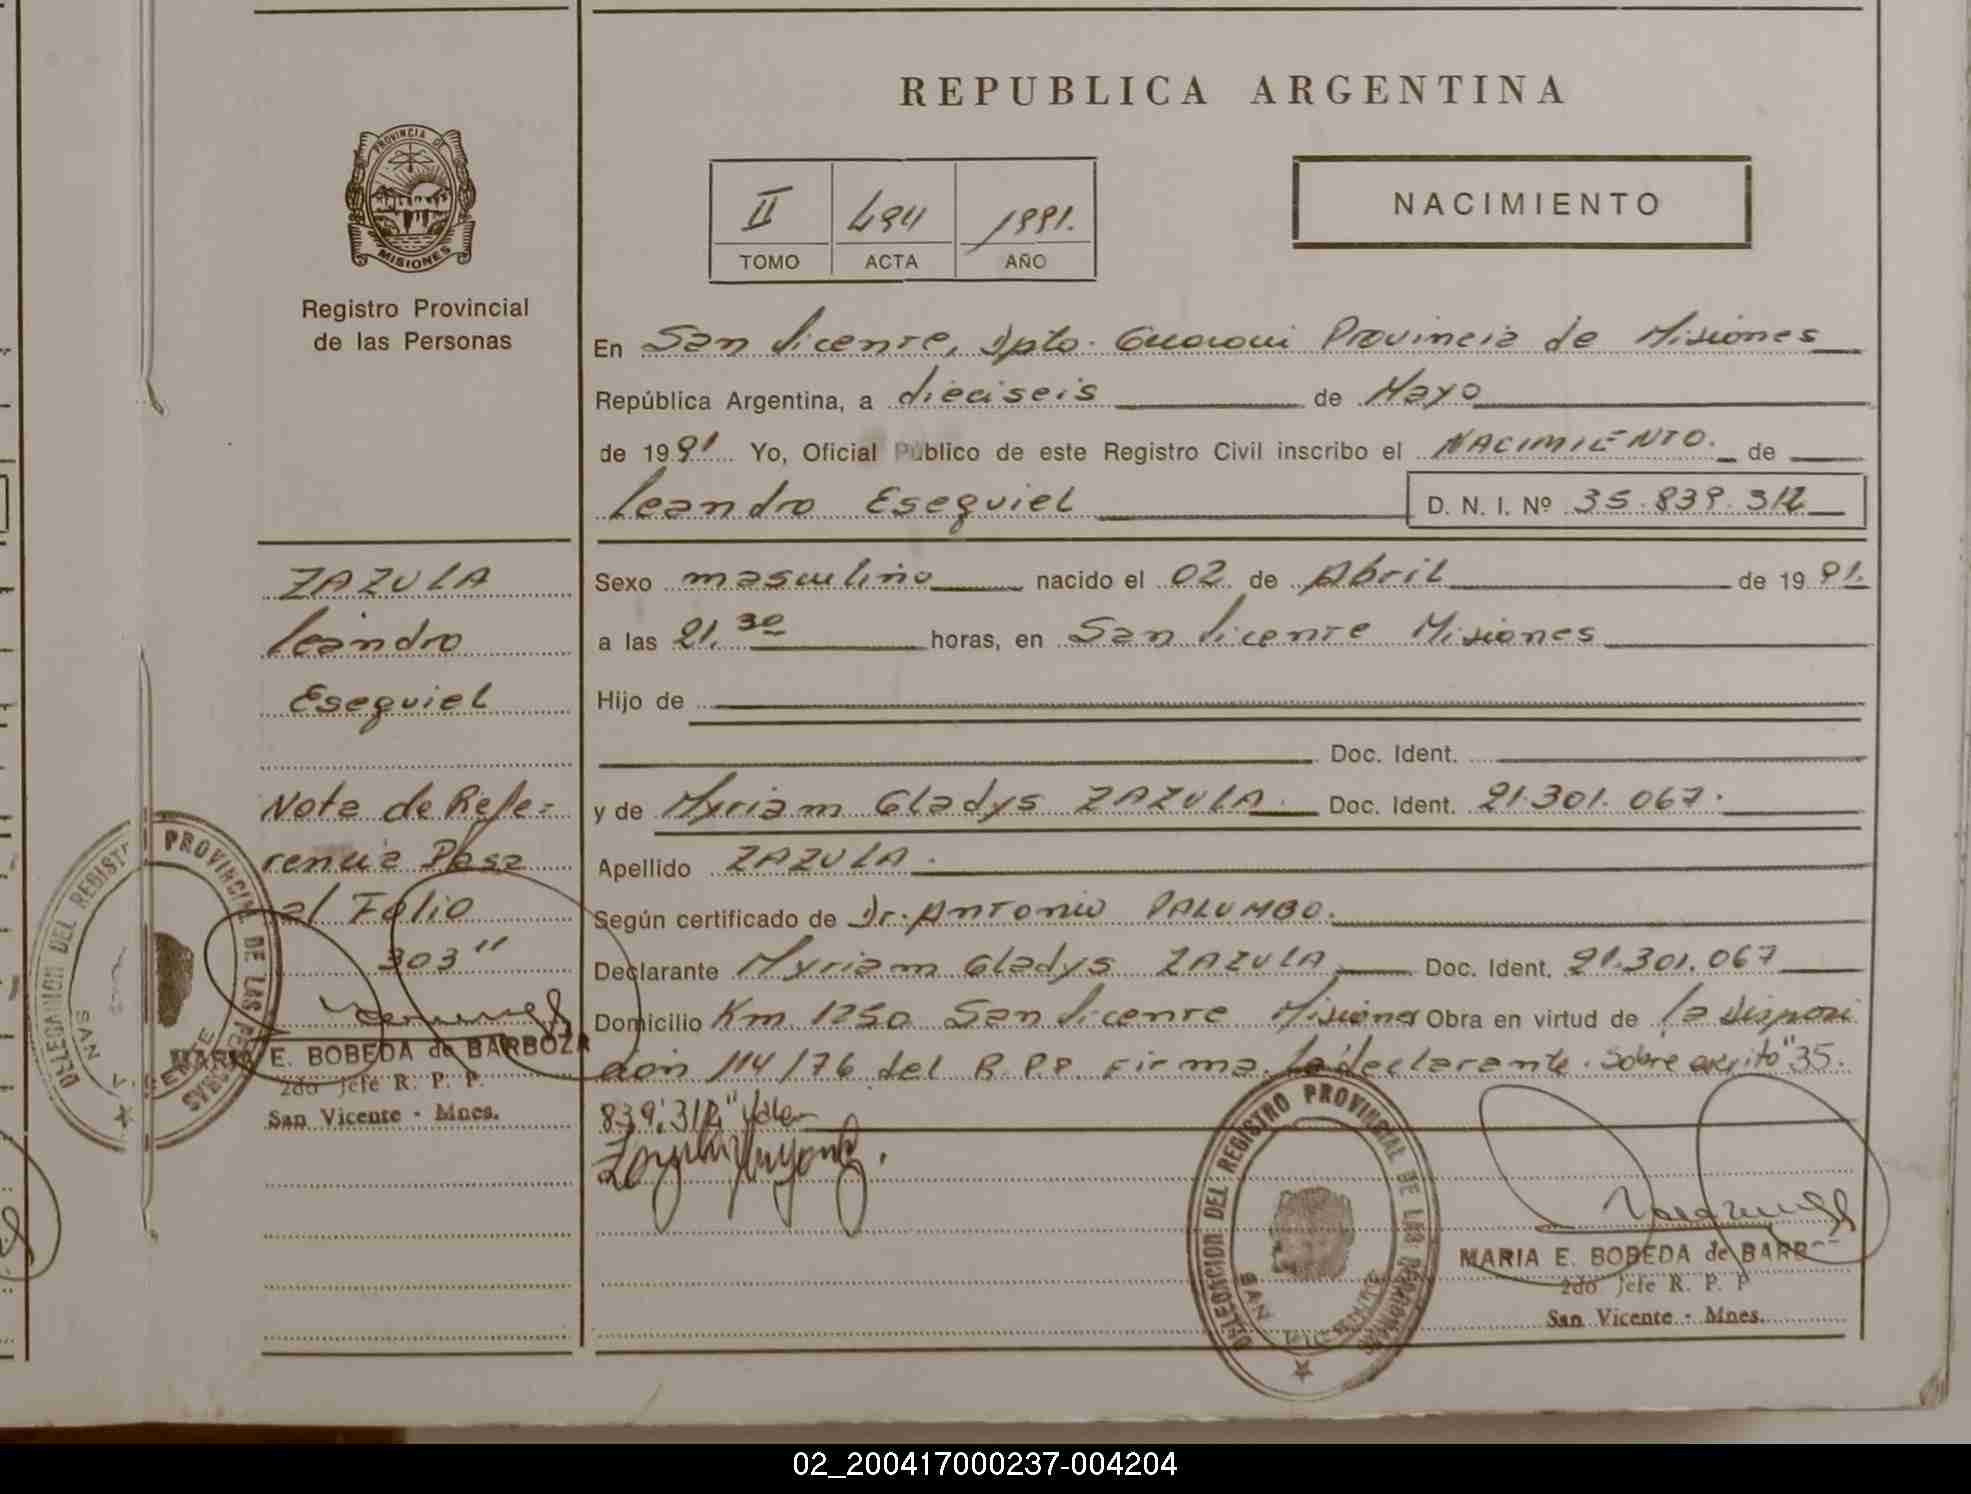 REPUBLICA ARGENTINA
PROVINCIA DE
MISIONES
Registro Provincial
de las Personas
II 494 1991.
TOMO ACTA AÑO
NACIMIENTO
En San Vicente, Dpto. Guarani Provincia de Misiones
República Argentina, a dieciseis de Mayo
de 1991 Yo, Oficial Público de este Registro Civil inscribo el NACIMIENTO. de
Leandro Esequiel D. N. I. Nº 35.839.312
ZAZULA
Leandro
Esequiel
Nota de Refe=
rencia Pasa
al Folio
303"
MARIA E. BOBEDA de BARBOZA
2do Jefe R. P. P.
San Vicente - Mnes.
DELEGACION DEL REGISTRO PROVINCIAL DE LAS PERSONAS
SAN VICENTE
Sexo masculino nacido el 02 de Abril de 1991.
a las 21.30 horas, en San Vicente Misiones
Hijo de
Doc. Ident.
y de Myriam Gladys ZAZULA. Doc. Ident. 21.301.067.
Apellido ZAZULA.
Según certificado de Dr. Antonio PALUMBO.
Declarante Myriam Gladys ZAZULA Doc. Ident. 21.301.067
Domicilio Km. 1250 San Vicente Misiones Obra en virtud de la disposi
cion 114/76 del R.P.P. Firma la declarante. Sobre escrito "35.
839.312" Vale
DELEGACION DEL REGISTRO PROVINCIAL DE LAS PERSONAS
SAN VICENTE
MARIA E. BOBEDA de BARB
2do Jefe R. P. P
San Vicente - Mnes.
02_200417000237-004204